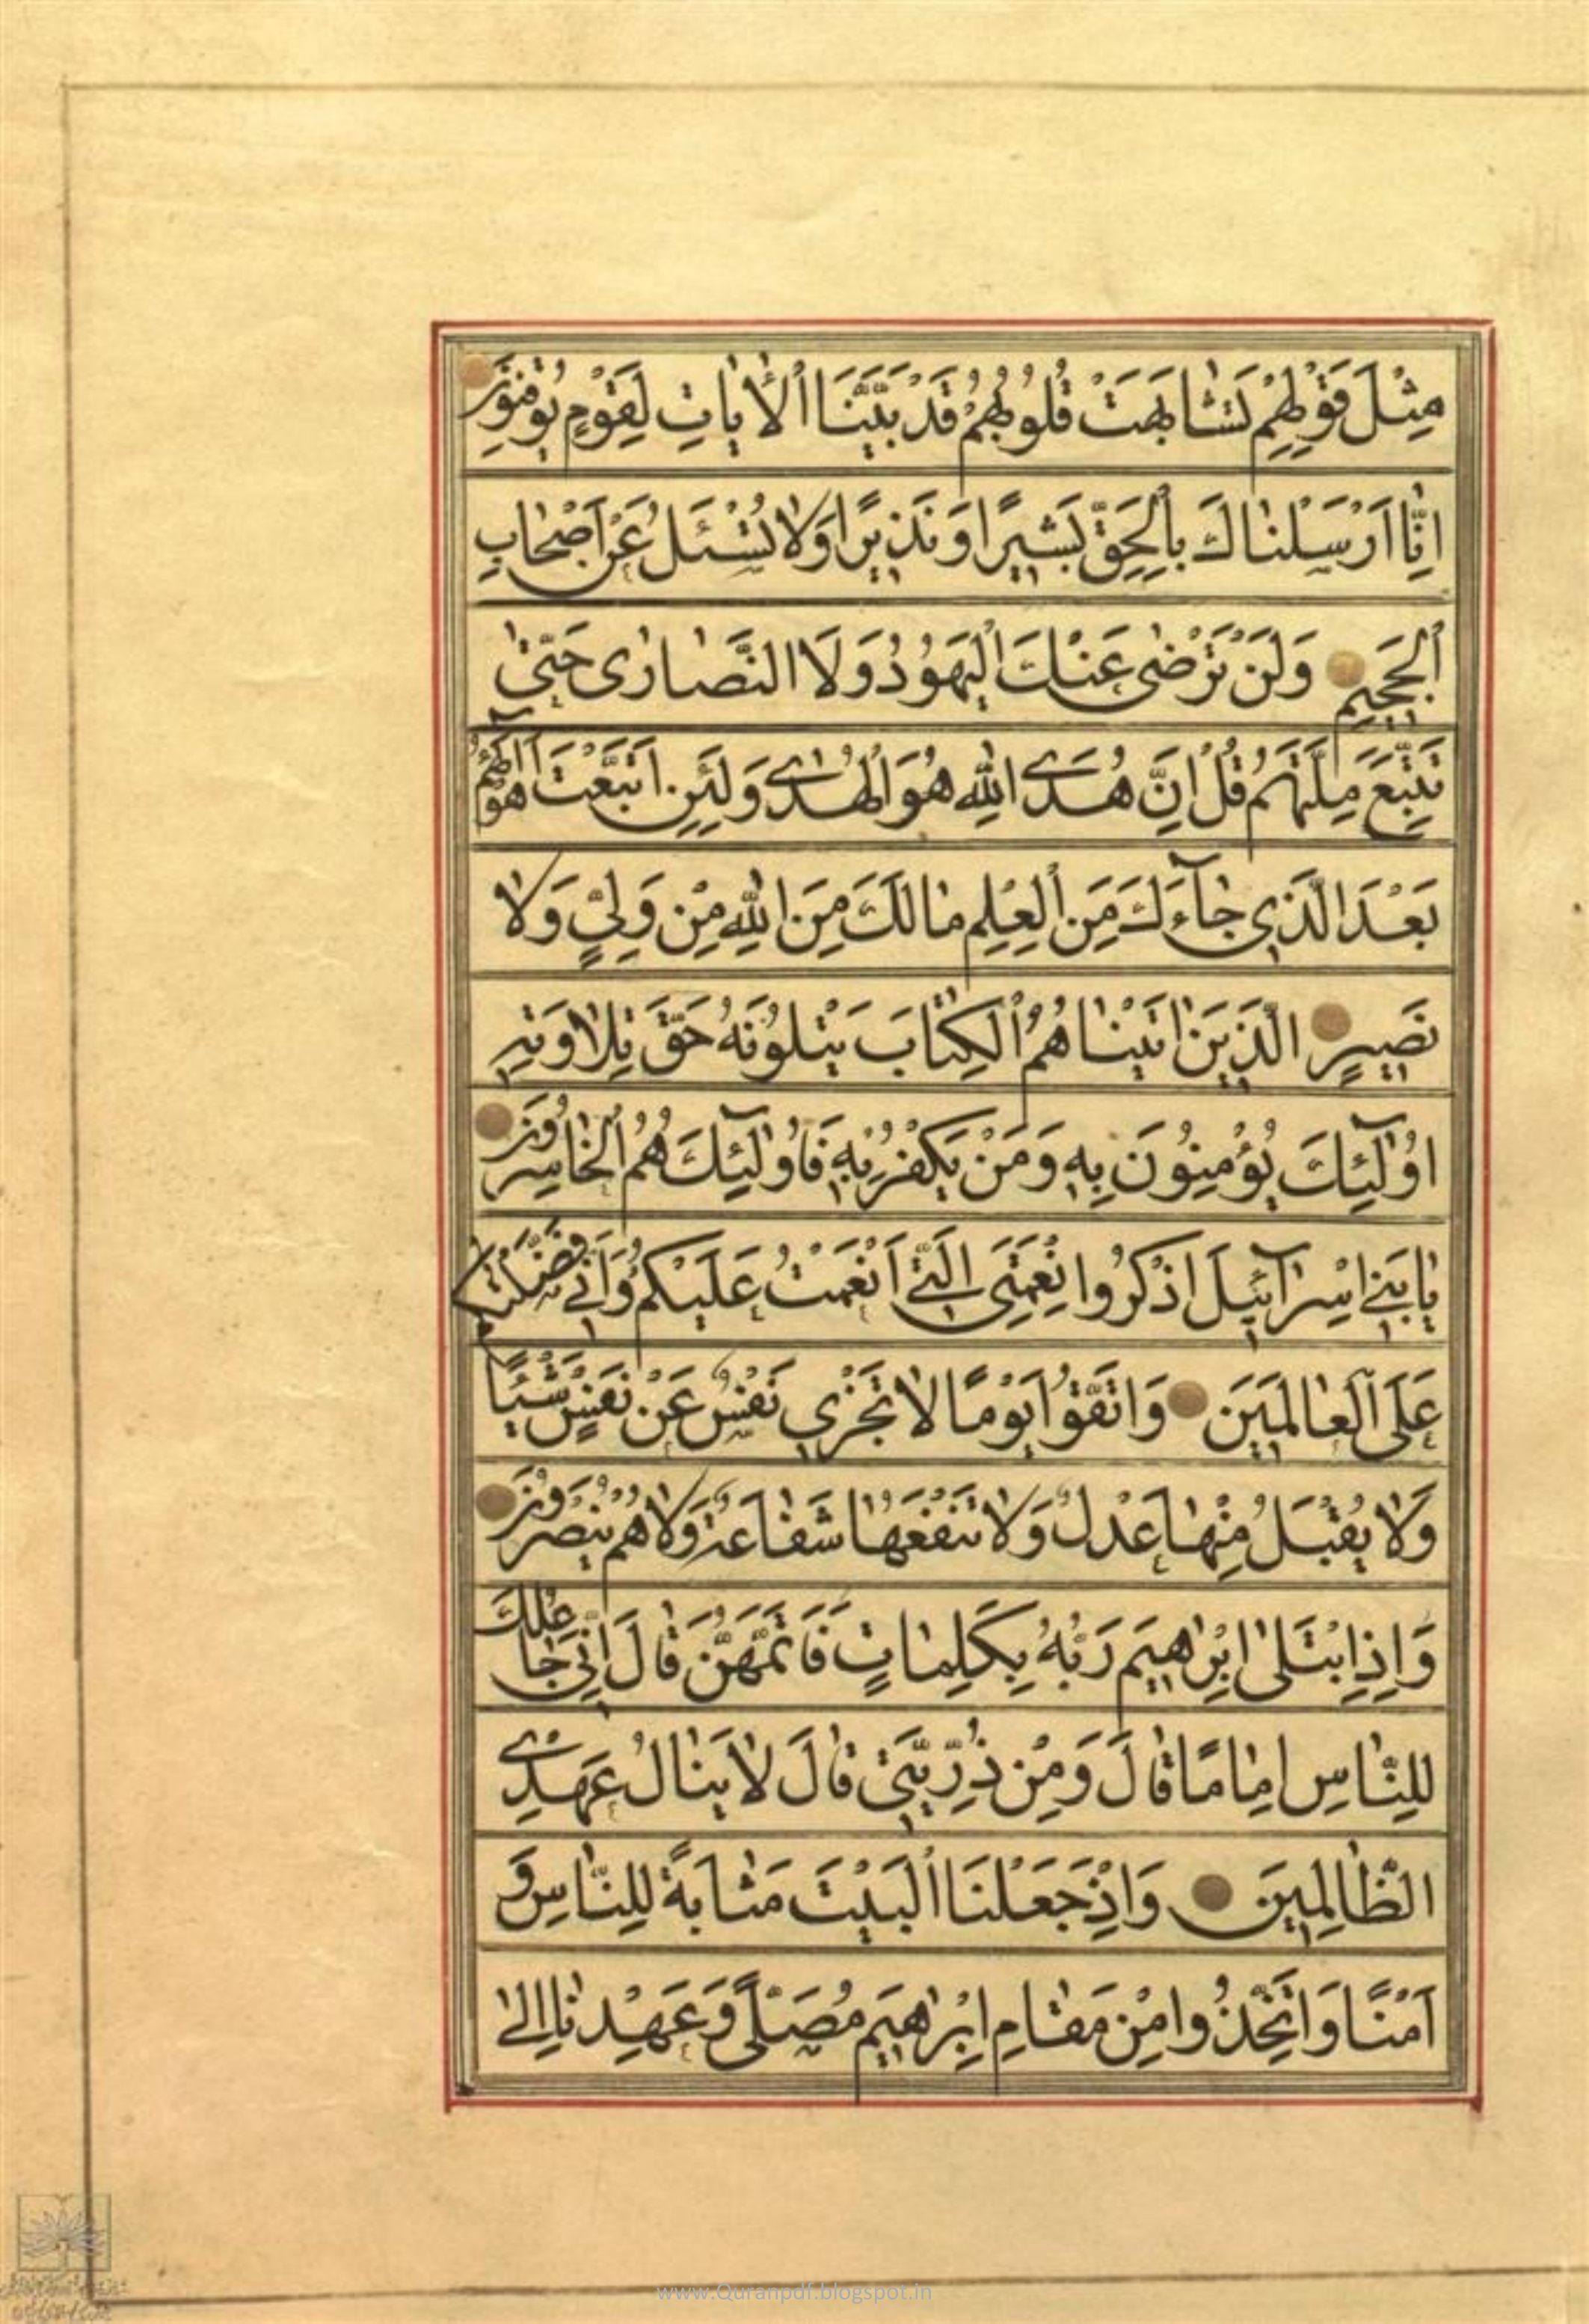 مِثْلَ قَوْلِهِمْ تَشَابَهَتْ قُلُوبُهُمْ قَدْ بَيَّنَّا الْاٰيَاتِ لِقَوْمٍ يُوقِنُونَ
اِنَّا اَرْسَلْنَاكَ بِالْحَقِّ بَشِيرًا وَنَذِيرًا وَلَا تُسْئَلُ عَنْ اَصْحَابِ
الْجَحِيمِ وَلَنْ تَرْضٰى عَنْكَ الْيَهُودُ وَلَا النَّصَارٰى حَتّٰى
تَتَّبِعَ مِلَّتَهُمْ قُلْ اِنَّ هُدَى اللّٰهِ هُوَ الْهُدٰى وَلَئِنِ اتَّبَعْتَ اَهْوَآءَهُمْ
بَعْدَ الَّذِي جَآءَكَ مِنَ الْعِلْمِ مَا لَكَ مِنَ اللّٰهِ مِنْ وَلِيٍّ وَلَا
نَصِيرٍ الَّذِينَ اٰتَيْنَاهُمُ الْكِتَابَ يَتْلُونَهُ حَقَّ تِلَاوَتِهِ
اُولٰٓئِكَ يُؤْمِنُونَ بِهِ وَمَنْ يَكْفُرْ بِهِ فَاُولٰٓئِكَ هُمُ الْخَاسِرُونَ
يَا بَنِي اِسْرَآئِيلَ اذْكُرُوا نِعْمَتِيَ الَّتِي اَنْعَمْتُ عَلَيْكُمْ وَاَنِّي فَضَّلْتُكُمْ
عَلَى الْعَالَمِينَ وَاتَّقُوا يَوْمًا لَا تَجْزِي نَفْسٌ عَنْ نَفْسٍ شَيْئًا
وَلَا يُقْبَلُ مِنْهَا عَدْلٌ وَلَا تَنْفَعُهَا شَفَاعَةٌ وَلَا هُمْ يُنْصَرُونَ
وَاِذِ ابْتَلٰى اِبْرٰهِيمَ رَبُّهُ بِكَلِمَاتٍ فَاَتَمَّهُنَّ قَالَ اِنِّي جَاعِلُكَ
لِلنَّاسِ اِمَامًا قَالَ وَمِنْ ذُرِّيَّتِي قَالَ لَا يَنَالُ عَهْدِي
الظَّالِمِينَ وَاِذْ جَعَلْنَا الْبَيْتَ مَثَابَةً لِلنَّاسِ وَ
اَمْنًا وَاتَّخِذُوا مِنْ مَقَامِ اِبْرٰهِيمَ مُصَلًّى وَعَهِدْنَا اِلٰى
www.Quranpdf.blogspot.in